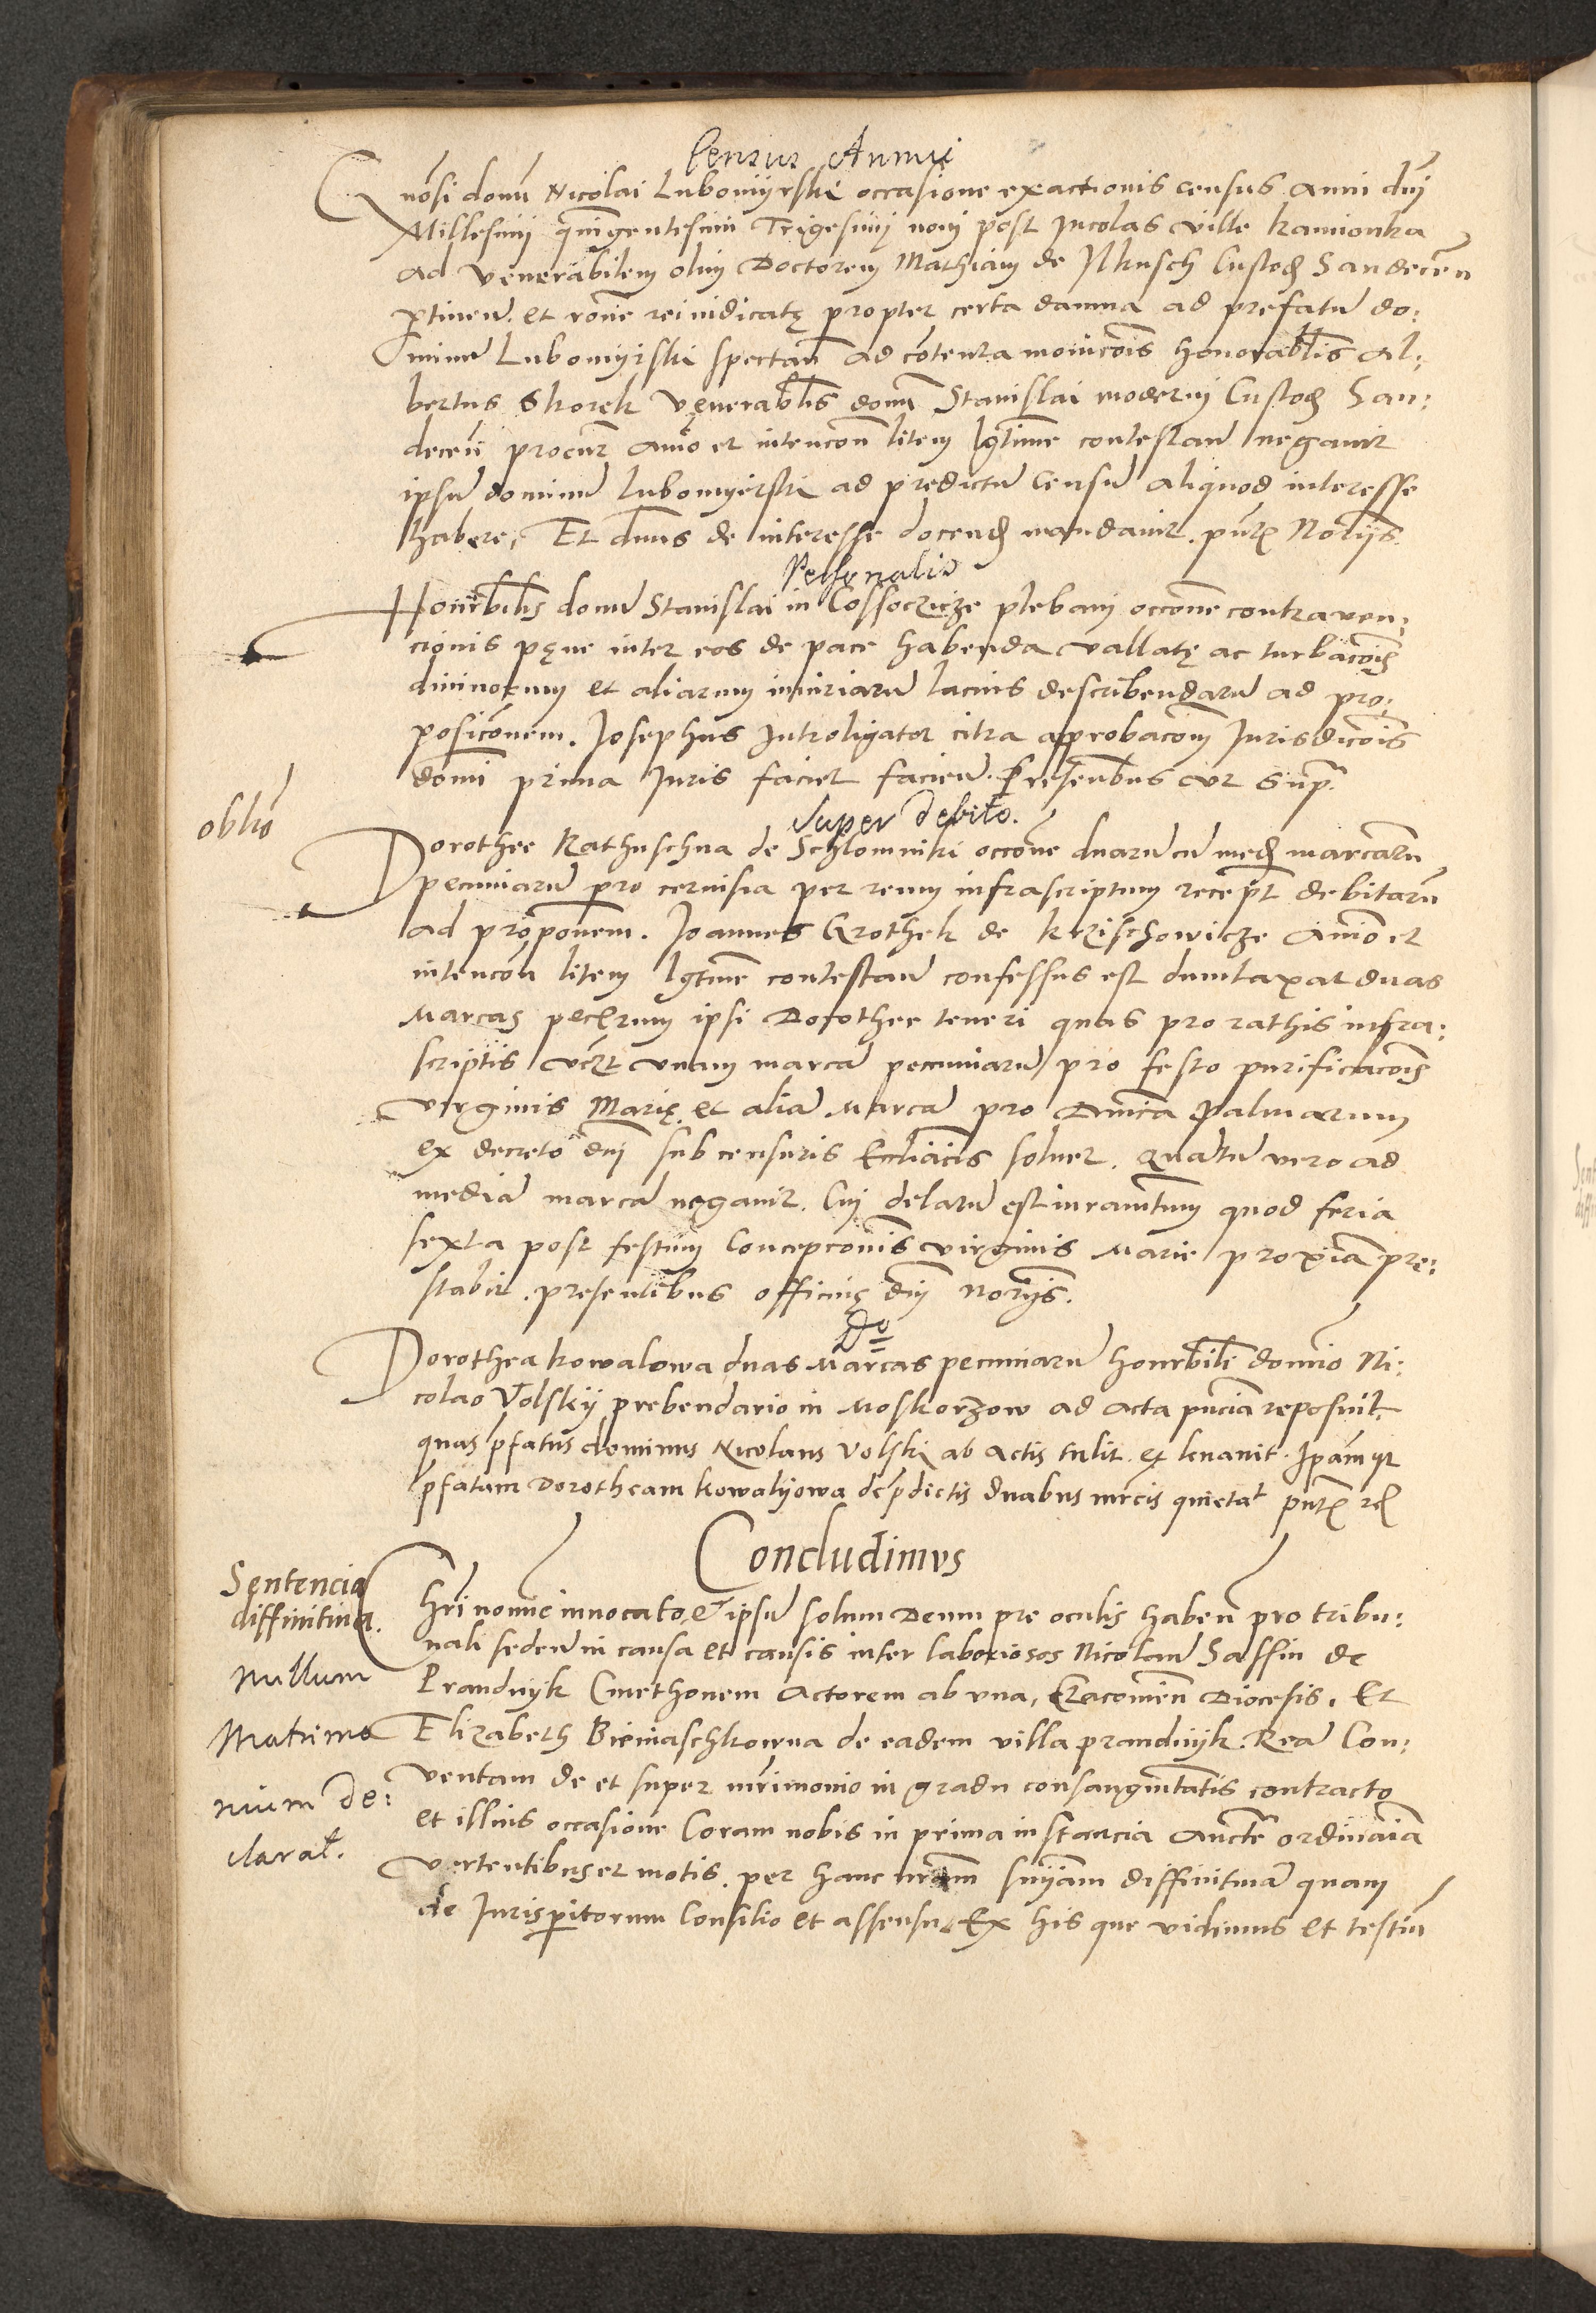 Census Annui
Gnosi domi Nicolai Lubomyrski occasione exactionis census anni dni
Millesimi quingentesimi Trigesimi noni post Incolas ville kamionka
ad venerabilem olim Doctorem Mathiam de Ilkusch Custod Sandecen
ptinen. et rone rei iudicate propter certa damna ad prefatu do:
minu Lubomyrski spectan ad contenta monicois honorabilis Al:
bertus Skorek venerabilis domi Stanislai moderni Custod San:
decen procur animo et intencon litem lgtime contestan negavit
ipsu dominu Lubomyirski ad predictu Censu aliquod interesse
habere, Et dnus de interesse docend mandavit. pntibus Notariis.
Personalis
Honrbilis domi Stanislai in Cossoczicze plebani occone contraven:
cionis pene inter eos de pace habenda vallate ac turbacois
divinorum et aliarum iniuriaru lacius describendaru ad pro:
posiconem. Josephus Introligator citra approbacom Jurisdicois
domi prima Juris faciet facien. Presentibus ut supra
oblio
Super debito.
Dorothee Rathuschna de Schlomniki occone duaru cu med marcaru
pecuniaru pro cervisia per reum infrascriptum recept debitaru
ad proponem. Joannes Grothek de krzischowicze animo et
intencon litem lgtime contestan confessus est dumtaxat duas
Marcas pecurum ipsi Dorothee teneri quas pro rathis infra:
scriptis vcz unam marca pecuniaru pro festo purificacois
virginis Marie et alia Marca pro Dnica Palmarum
ex decreto dni sub censuris Eccliacis solvet. Quatu vero ad
media marca negavit. Cui delatu est iuramtum quod feria
sexta post festum Concepconis virginis Marie proxia pre:
stabit. presentibus officii dni notriis.
Do
Dorothea kowalowa duas Marcas pecuniaru honrbili domino Ni:
colao Volskij prebendario in Moskorzow ad acta puncia reposuit
quas pfatus dominus Nicolaus Volski ab actis tulit et levavit. Ipamqz
pfatam Dorotheam kowalyowa de pdictis duabus mrcis quietat pntibus
Concludimus
Sentencia
diffinitiva.
Nullum
Matrimo
nium de:
clarat.
Chri nomine invocato et ipsu solum Deum pre oculis haben pro tribu:
nali seden in causa et causis inter laboriosos Nicolau Saffin de
Prandnyk Cmethonem Actorem ab una, Cracovien Diocesis. Et
Elizabeth Biemaschkowna de eadem villa prandnyk. Rea Con:
ventam de et super mrimonio in gradu consanguitatis contracto
et illius occasione Coram nobis in prima instancia Auctte ordinaria
vertentibus et motis. per hanc nram sniam diffinitiva quam
de Jurisperitorum Consilio et assensu. Ex his que vidimus et testiu